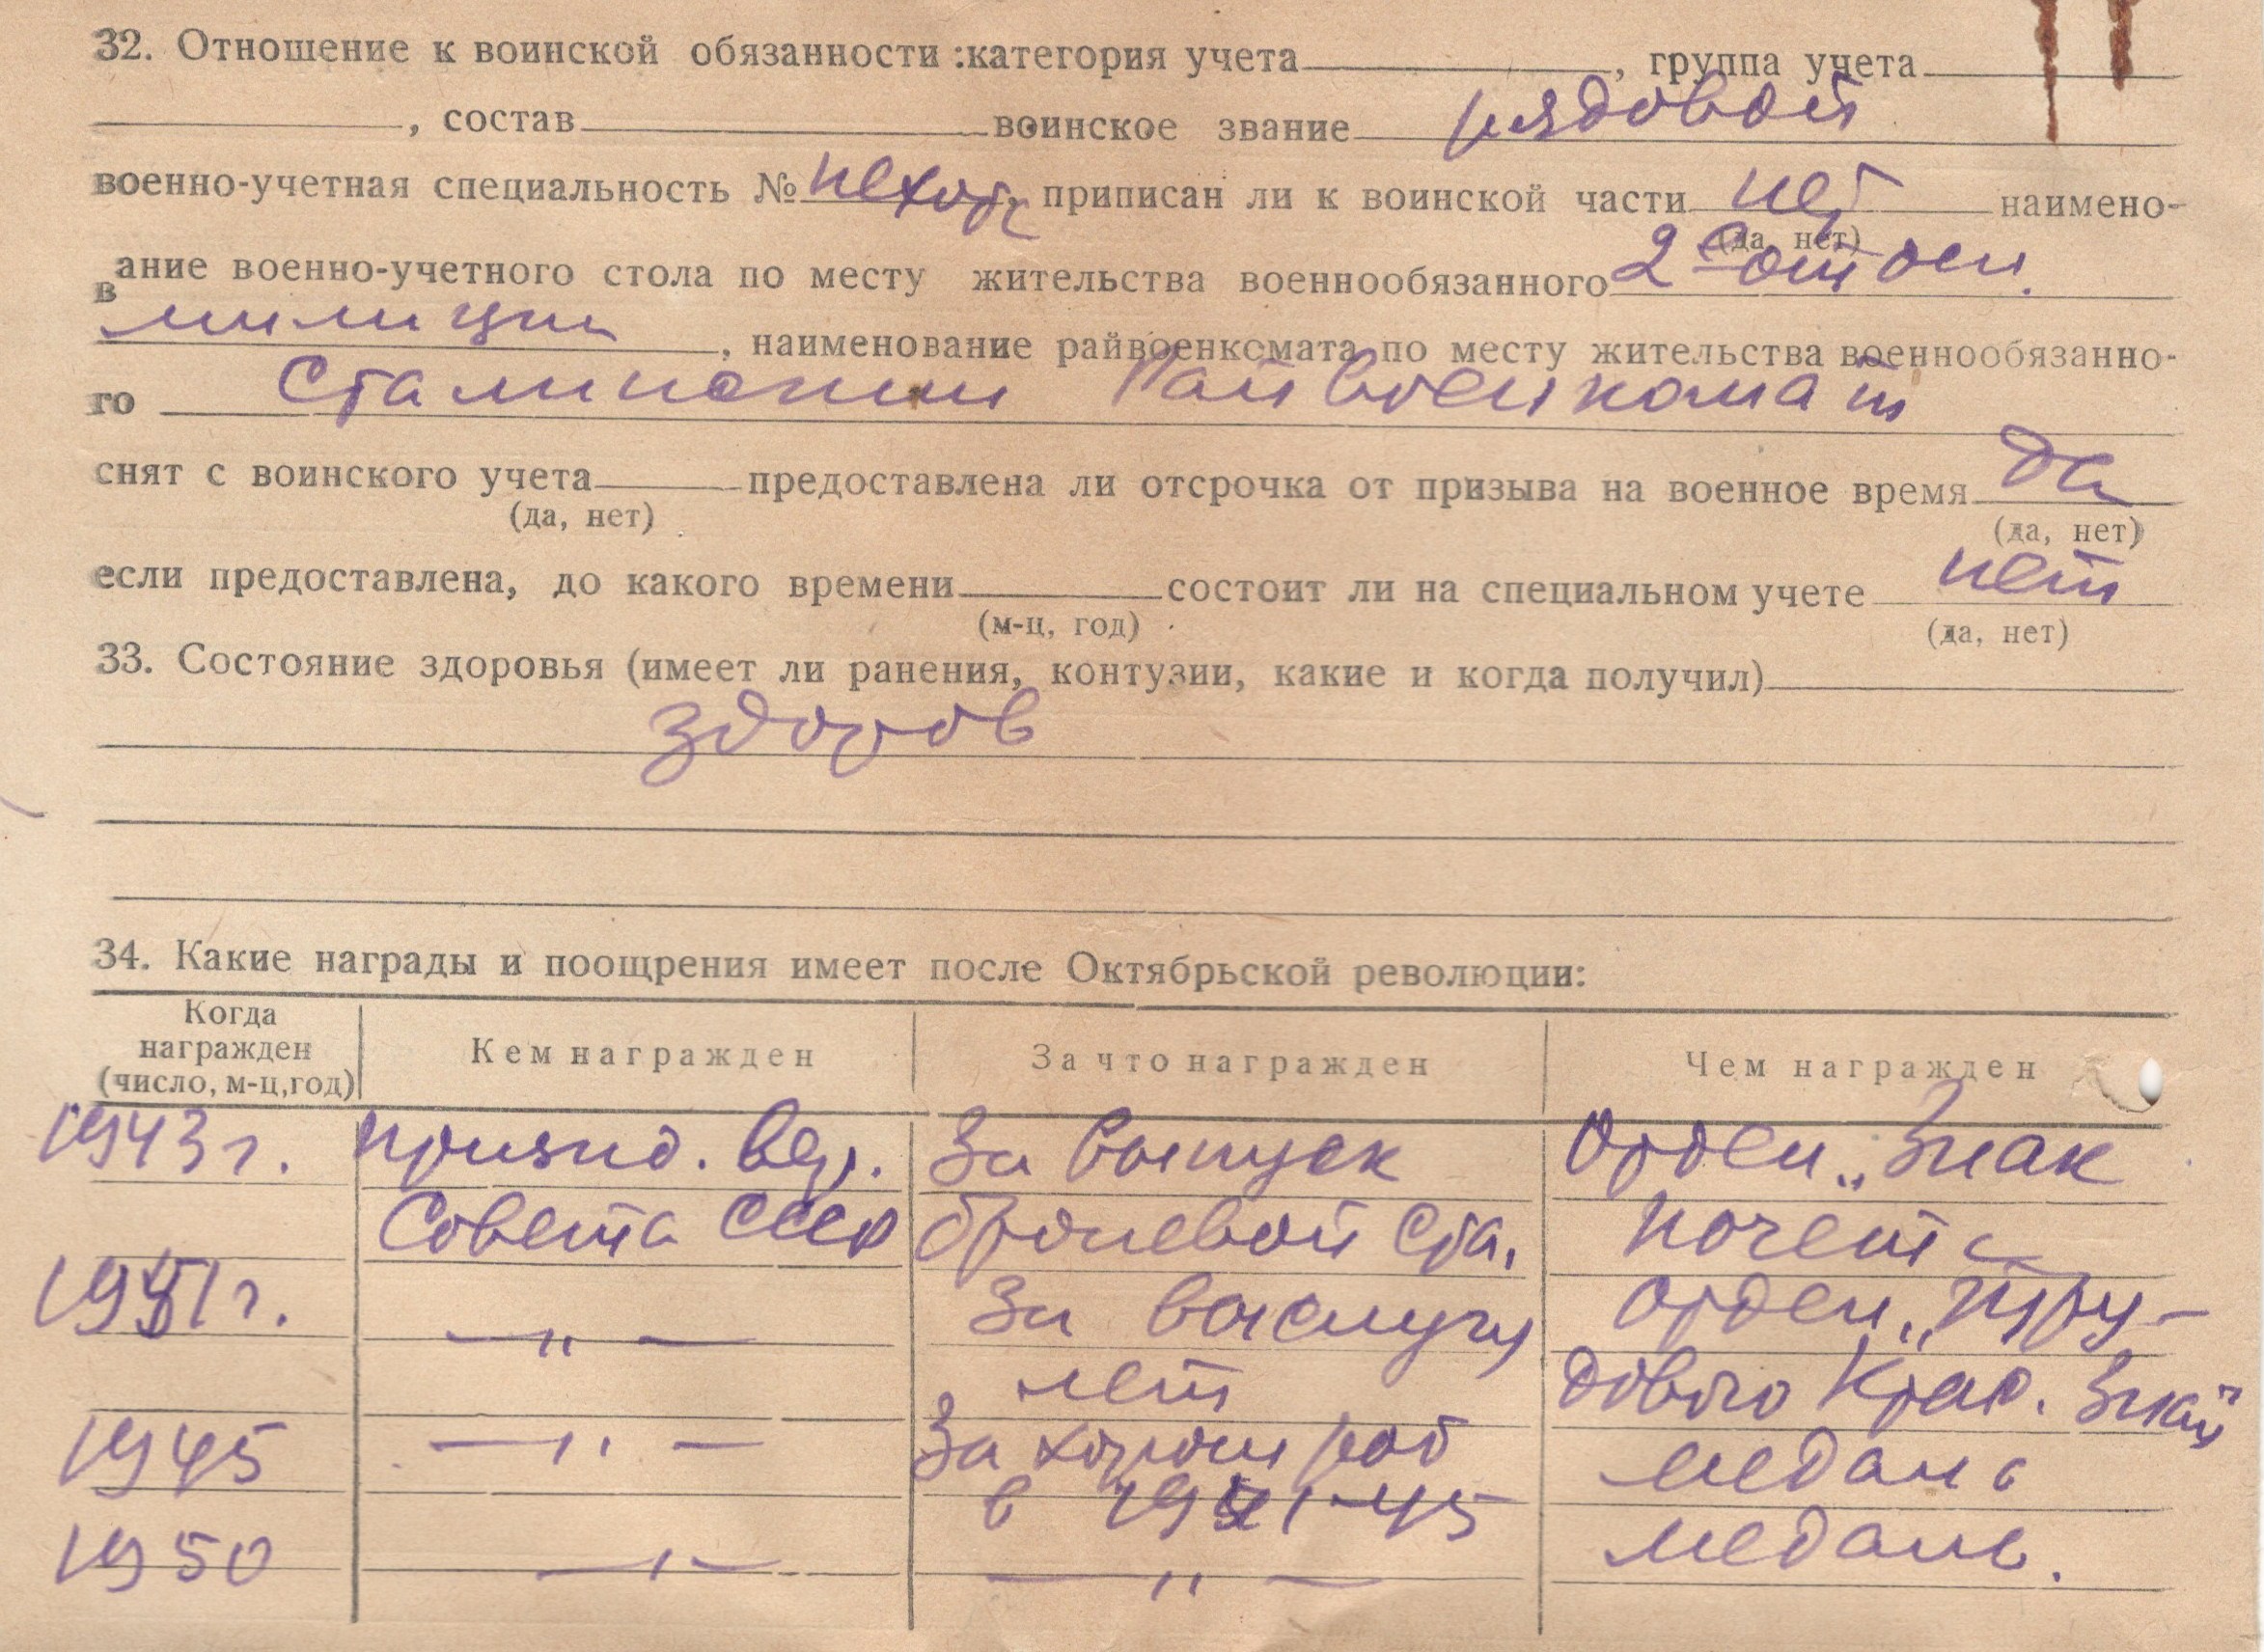 32. Отношение к воинской обязанности: категория учета, группа учета
, состав воинское звание рядовой
военно-учетная специальность № пехота, приписан ли к воинской части нет наимено-
(да, нет)
вание военно-учетного стола по месту жительства военнообязанного 2е отден.
милиции, наименование райвоенкомата по месту жительства военнообязанно-
го Сталинский Райвоенкомат
снят с воинского учета предоставлена ли отсрочка от призыва на военное время да
(да, нет) (да, нет)
если предоставлена, до какого времени состоит ли на специальном учете нет
(м-ц, год) (да, нет)
33. Состояние здоровья (имеет ли ранения, контузии, какие и когда получил)
здоров
34. Какие награды и поощрения имеет после Октябрьской революции:
Когда награжден (число, м-ц, год) Кем награжден За что награжден Чем награжден
1943 г. През. Вер. За выпуск Орден „Знак
Совета СССР броневой ста. почета
1951 г. — " — За выслугу орден „Тру-
лет дового Крас. Знам"
1945 — " — За хорош раб медаль
в 1941-45
1950 — " — — " — медаль.